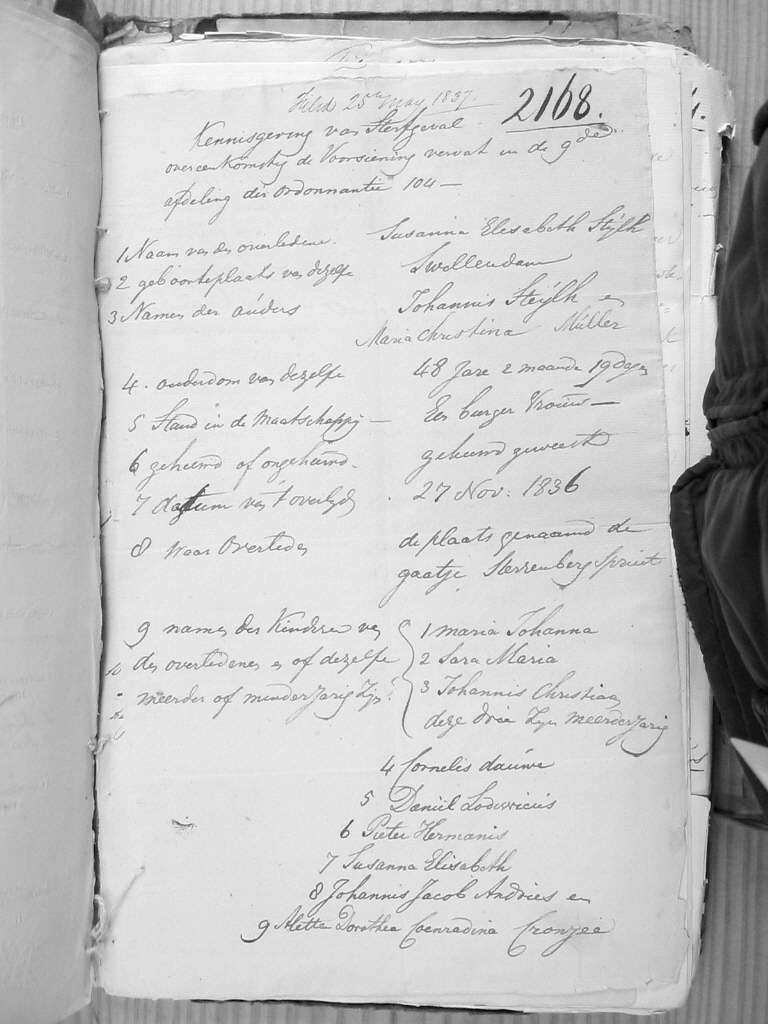 Filed 25th May 1837.
2168.
Kennisgeving van Sterfgeval
overeenkomstig de Voorsiening vervat in de 9de
afdeling der ordonnantie 104 —
1 Naam van der overledene. Susanna Elesabeth Stÿlh
2 geboorteplaats van dezelfe Swellendam
3 Names der ouders Johannis Steÿlh en
Maria Christina Müller
4. ouderdom van dezelfe 48 Jare 2 maande 19 Dagen
5 Stand in de Maatschappij — Een burger Vrouw —
6 gehuwd of ongehuwd. gehuwd geweest
7 datum van 't overlyde 27 Nov: 1836
8 waar Overleden de plaats genaamd de
gaatje Sterrenberg Spruit
9 names der Kinderen van 1 maria Johanna
der overledene en of dezelfe 2 Sara Maria
meerder of minderjarig Zijn? 3 Johannis Christiaan
deze drie Zijn meerderjarig
4 Cornelis dauwe
5 Daniel Lodewicus
6 Pieter Hermanis
7 Susanna Elisabeth
8 Johannis Jacob Andries en
9 Aletta Dorothea Coenradina Cronjee